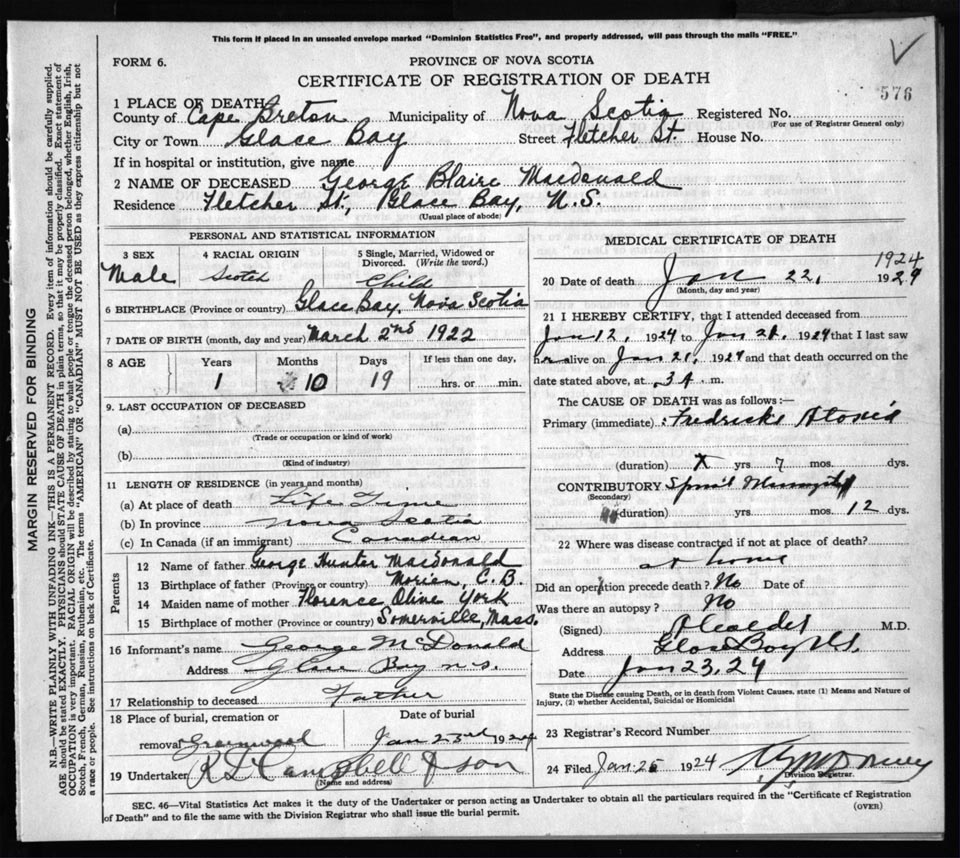 This form if placed in an unsealed envelope marked "Dominion Statistics Free", and properly addressed, will pass through the mails "FREE."
FORM 6.
PROVINCE OF NOVA SCOTIA
CERTIFICATE OF REGISTRATION OF DEATH
576
1 PLACE OF DEATH
County of Cape Breton Municipality of Nova Scotia Registered No.
(For use of Registrar General only)
City or Town Glace Bay Street Fletcher St. House No.
If in hospital or institution, give name
2 NAME OF DECEASED George Blaire Macdonald
Residence Fletcher St., Glace Bay, N.S.
(Usual place of abode)
PERSONAL AND STATISTICAL INFORMATION
3 SEX 4 RACIAL ORIGIN 5 Single, Married, Widowed or Divorced. (Write the word.)
Male Scotch Child
6 BIRTHPLACE (Province or country) Glace Bay, Nova Scotia
7 DATE OF BIRTH (month, day and year) March 2nd 1922
8 AGE Years Months Days If less than one day,
1 10 19 hrs. or min.
9. LAST OCCUPATION OF DECEASED
(a)
(Trade or occupation or kind of work)
(b)
(Kind of industry)
11 LENGTH OF RESIDENCE (in years and months)
(a) At place of death Life Time
(b) In province Nova Scotia
(c) In Canada (if an immigrant) Canadian
Parents
12 Name of father George Hunter Macdonald
13 Birthplace of father (Province or country) Morien, C.B.
14 Maiden name of mother Florence Olive York
15 Birthplace of mother (Province or country) Somerville, Mass.
16 Informant's name George McDonald
Address Glace Bay n.s.
17 Relationship to deceased Father
18 Place of burial, cremation or Date of burial
removal Greenwood Jan 23rd 1924
19 Undertaker R D Campbell & son
(Name and address)
MEDICAL CERTIFICATE OF DEATH
1924
20 Date of death Jan 22, 1924
(Month, day and year)
21 I HEREBY CERTIFY, that I attended deceased from
Jan 12, 1924 to Jan 21, 1924 that I last saw
h alive on Jan 21, 1924 and that death occurred on the
date stated above, at 3 A. m.
The CAUSE OF DEATH was as follows:—
Primary (immediate)
(duration) X yrs. 7 mos. dys.
CONTRIBUTORY
(Secondary)
(duration) yrs. mos. 12 dys.
22 Where was disease contracted if not at place of death?
at home
Did an operation precede death? No Date of
Was there an autopsy? No
(Signed) M.D.
Address Glace Bay N.S.
Date Jan 23, 24
State the Disease causing Death, or in death from Violent Causes, state (1) Means and Nature of Injury, (2) whether Accidental, Suicidal or Homicidal
23 Registrar's Record Number
24 Filed Jan. 25 1924
Division Registrar.
SEC. 46—Vital Statistics Act makes it the duty of the Undertaker or person acting as Undertaker to obtain all the particulars required in the "Certificate of Registration
of Death" and to file the same with the Division Registrar who shall issue the burial permit.
(OVER)
MARGIN RESERVED FOR BINDING
N.B.—WRITE PLAINLY WITH UNFADING INK—THIS IS A PERMANENT RECORD. Every item of information should be carefully supplied.
AGE should be stated EXACTLY. PHYSICIANS should STATE CAUSE OF DEATH in plain terms, so that it may be properly classified. Exact statement of
OCCUPATION is very important. RACIAL ORIGIN will be described by stating to what people or tongue the deceased person belonged, whether English, Irish,
Scotch, French, German, Russian, Ruthenian, etc. The terms "AMERICAN" OR "CANADIAN" MUST NOT BE USED as they express citizenship but not
a race or people. See instructions on back of Certificate.